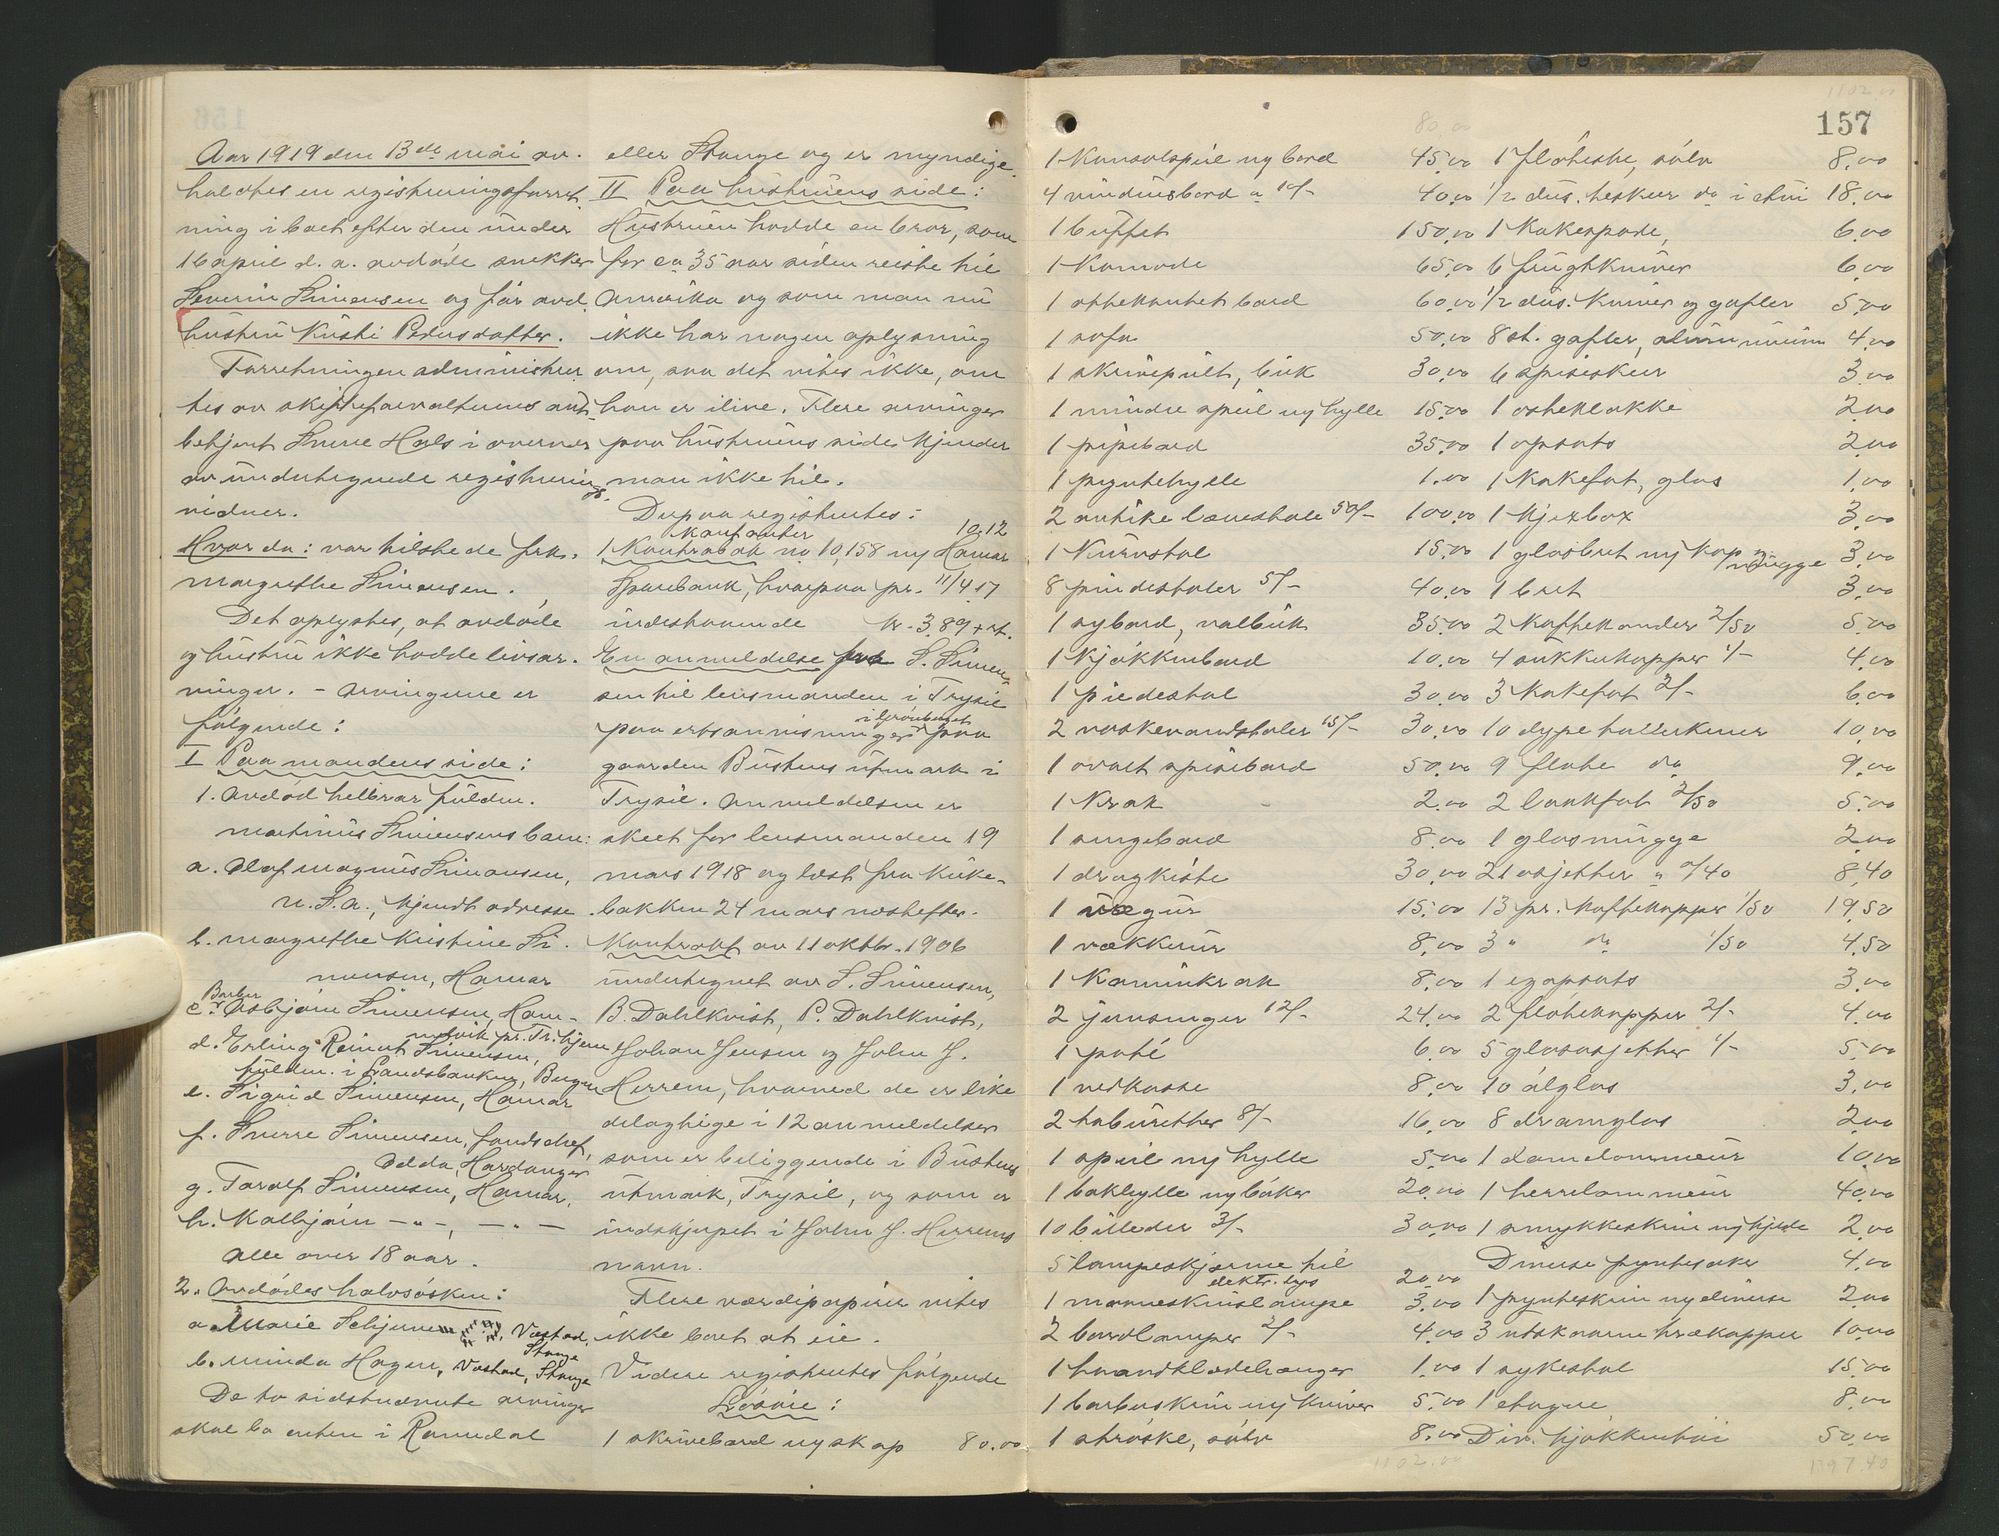 Aar 1919 den 13de mai av-
holdtes en registreringsforret-
ning i boet efter den under
16 april d. a. avdøde snekker
Severin Simensen og før avd.
hustru Kristi Pedersdatter.
Forretningen administrer
tes av skifteforvalterens ...
... Sverre Hals i overvær
av undertegnede registrerings
vidner.
Hvorda: var tilstede frk.
Margrethe Simensen.
Det oplystes, at avdøde
og hustru ikke hadde livsar-
vinger. - Arvingene er
følgende:
I Paa mandens side:
1. Avdød helbror fuldm.
Martinius Simensens barn:
a. Olaf Magnus Simensen,
U.S.A., kjendt adresse.
b. Margrethe Kristine Si-
mensen, Hamar
c. Barber Asbjørn Simensen, Ham-
d. Erling Reinert Simensen,
fuldm. i Landsbanken, Bergen
e. Sigrid Simensen, Hamar
f. Sverre Simensen, fondschef,
Odda, Hardanger
g. Toralf Simensen, Hamar,
h. Kolbjørn -"-, -"-
Alle over 18 aar.
2. Avdødes halvsøsken:
a. Marie Schjerven, Vestad, Stange
b. Minda Hagen, Vestad, Stange
De to sidstnævnte arvinger
skal bo enten i Romedal
eller Stange og er myndige.
II Paa hustruens side:
Hustruen hadde en bror, som
for ca 35 aar siden reiste til
Amerika og som man nu
ikke har nogen oplysning
om, saa det vites ikke, om
han er ilive. Flere arvinger
paa hustruens side kjender
man ikke til.
Derpaa registrertes:
1 Kontrabok no 10,158 m/ Hamar
Sparebank, hvorpaa pr. 11/4 17
indestaaende kr. 3,89 + rt.
En anmeldelse fra S. Simen-
sen til lensmanden i Trysil
paa ertsanvisninger paa
gaarden Bustens utmark i
Trysil. Anmeldelsen er
skeet for lensmanden 19
mars 1918 og læst fra kirke-
bakken 24 mars næstefter.
Kontrakt av 11 oktbr. 1906
undertegnet av S. Simensen,
B. Dahlkvist, P. Dahlkvist,
Johan Jensen og John J.
Herrem, hvorved de er like
delagtige i 12 anmeldelser
som er beliggende i Bustens
utmark, Trysil, og som er
indskjerpet i John J. Herrems
navn.
Flere værdipapirer vites
ikke boet at eie.
Videre registrertes følgende
Løsøre:
1 skrivebord m/ skap 80.00
157
1 Konsolspeil m/ bord 45,00
4 vindusbord a 10/- 40,00
1 buffet 150,00
1 Komode 65,00
1 ottekantet bord 60,00
1 sofa 50,00
1 skrivepult, birk 30,00
1 mindre speil m/ hylle 15,00
1 pipebord 35,00
1 pyntehylle 1,00
2 antike lænestole 50/- 100,00
1 Kurvstol 15,00
8 pindestoler 5/- 40,00
1 sybord, valbirk 35,00
1 Kjøkkenbord 10,00
1 piedestal 30,00
2 vaskevandstoler 15/- 30,00
1 ovalt spisebord 50,00
1 Krak 2,00
1 sengebord 8,00
1 dragkiste 30,00
1 vægur 15,00
1 vækkerur 8,00
1 Kaminkrak 8,00
2 jernsenger 12/- 24,00
1 potè 6,00
1 vedkasse 8,00
2 taburetter 8/- 16,00
1 speil m/ hylle 5,00
1 bokhylle m/ bøker 20,00
10 billeder 3/- 30,00
5 lampeskjerme til elektr. lys 20,00
1 maaneskinslampe 3,00
2 bordlamper 2/- 4,00
1 haandklædehænger 1,00
1 barberskrin m/ kniver 5,00
1 strøske, sølv 8,00
1102.00
1 fløteske, sølv 8,00
1/2 dus. teskeer do i etui 18,00
1 Kakespade, 6,00
6 frugtkniver 6,00
1/2 dus. kniver og gafler 5,00
8 st. gafler, aluminium 4,00
6 spiseskeer 3,00
1 osteklokke 2,00
1 opsats 2,00
1 Kakefat, glas 1,00
1 kjexbox 3,00
1 glasbret m/ kop og mugge 3,00
1 bret 3,00
2 Kaffekander 2/50 5,00
4 sukkerkopper 1/- 4,00
3 Kakefat 2/- 6,00
10 dype tallerkener 10,00
9 flate do 9,00
2 lankfat 2/50 5,00
1 glasmugge 2,00
21 asjetter a 0/40 8,40
13 pr. kaffekopper 1/50 19,50
3 " do 1/50 4,50
1 egopsats 3,00
2 fløtekopper 2/- 4,00
5 glasasjetter 1/- 5,00
10 ølglas 3,00
8 dramglas 2,00
1 damelommeur 10,00
1 herrelommeur 40,00
1 smykkeskrin m/ kjede 2,00
Diverse pyntesaker 4,00
1 pynteskrin m/ diverse 2,00
3 utskaarne trækopper 10,00
1 sykestol 15,00
1 etagere 8,00
Div. kjøkkentøi 50,00